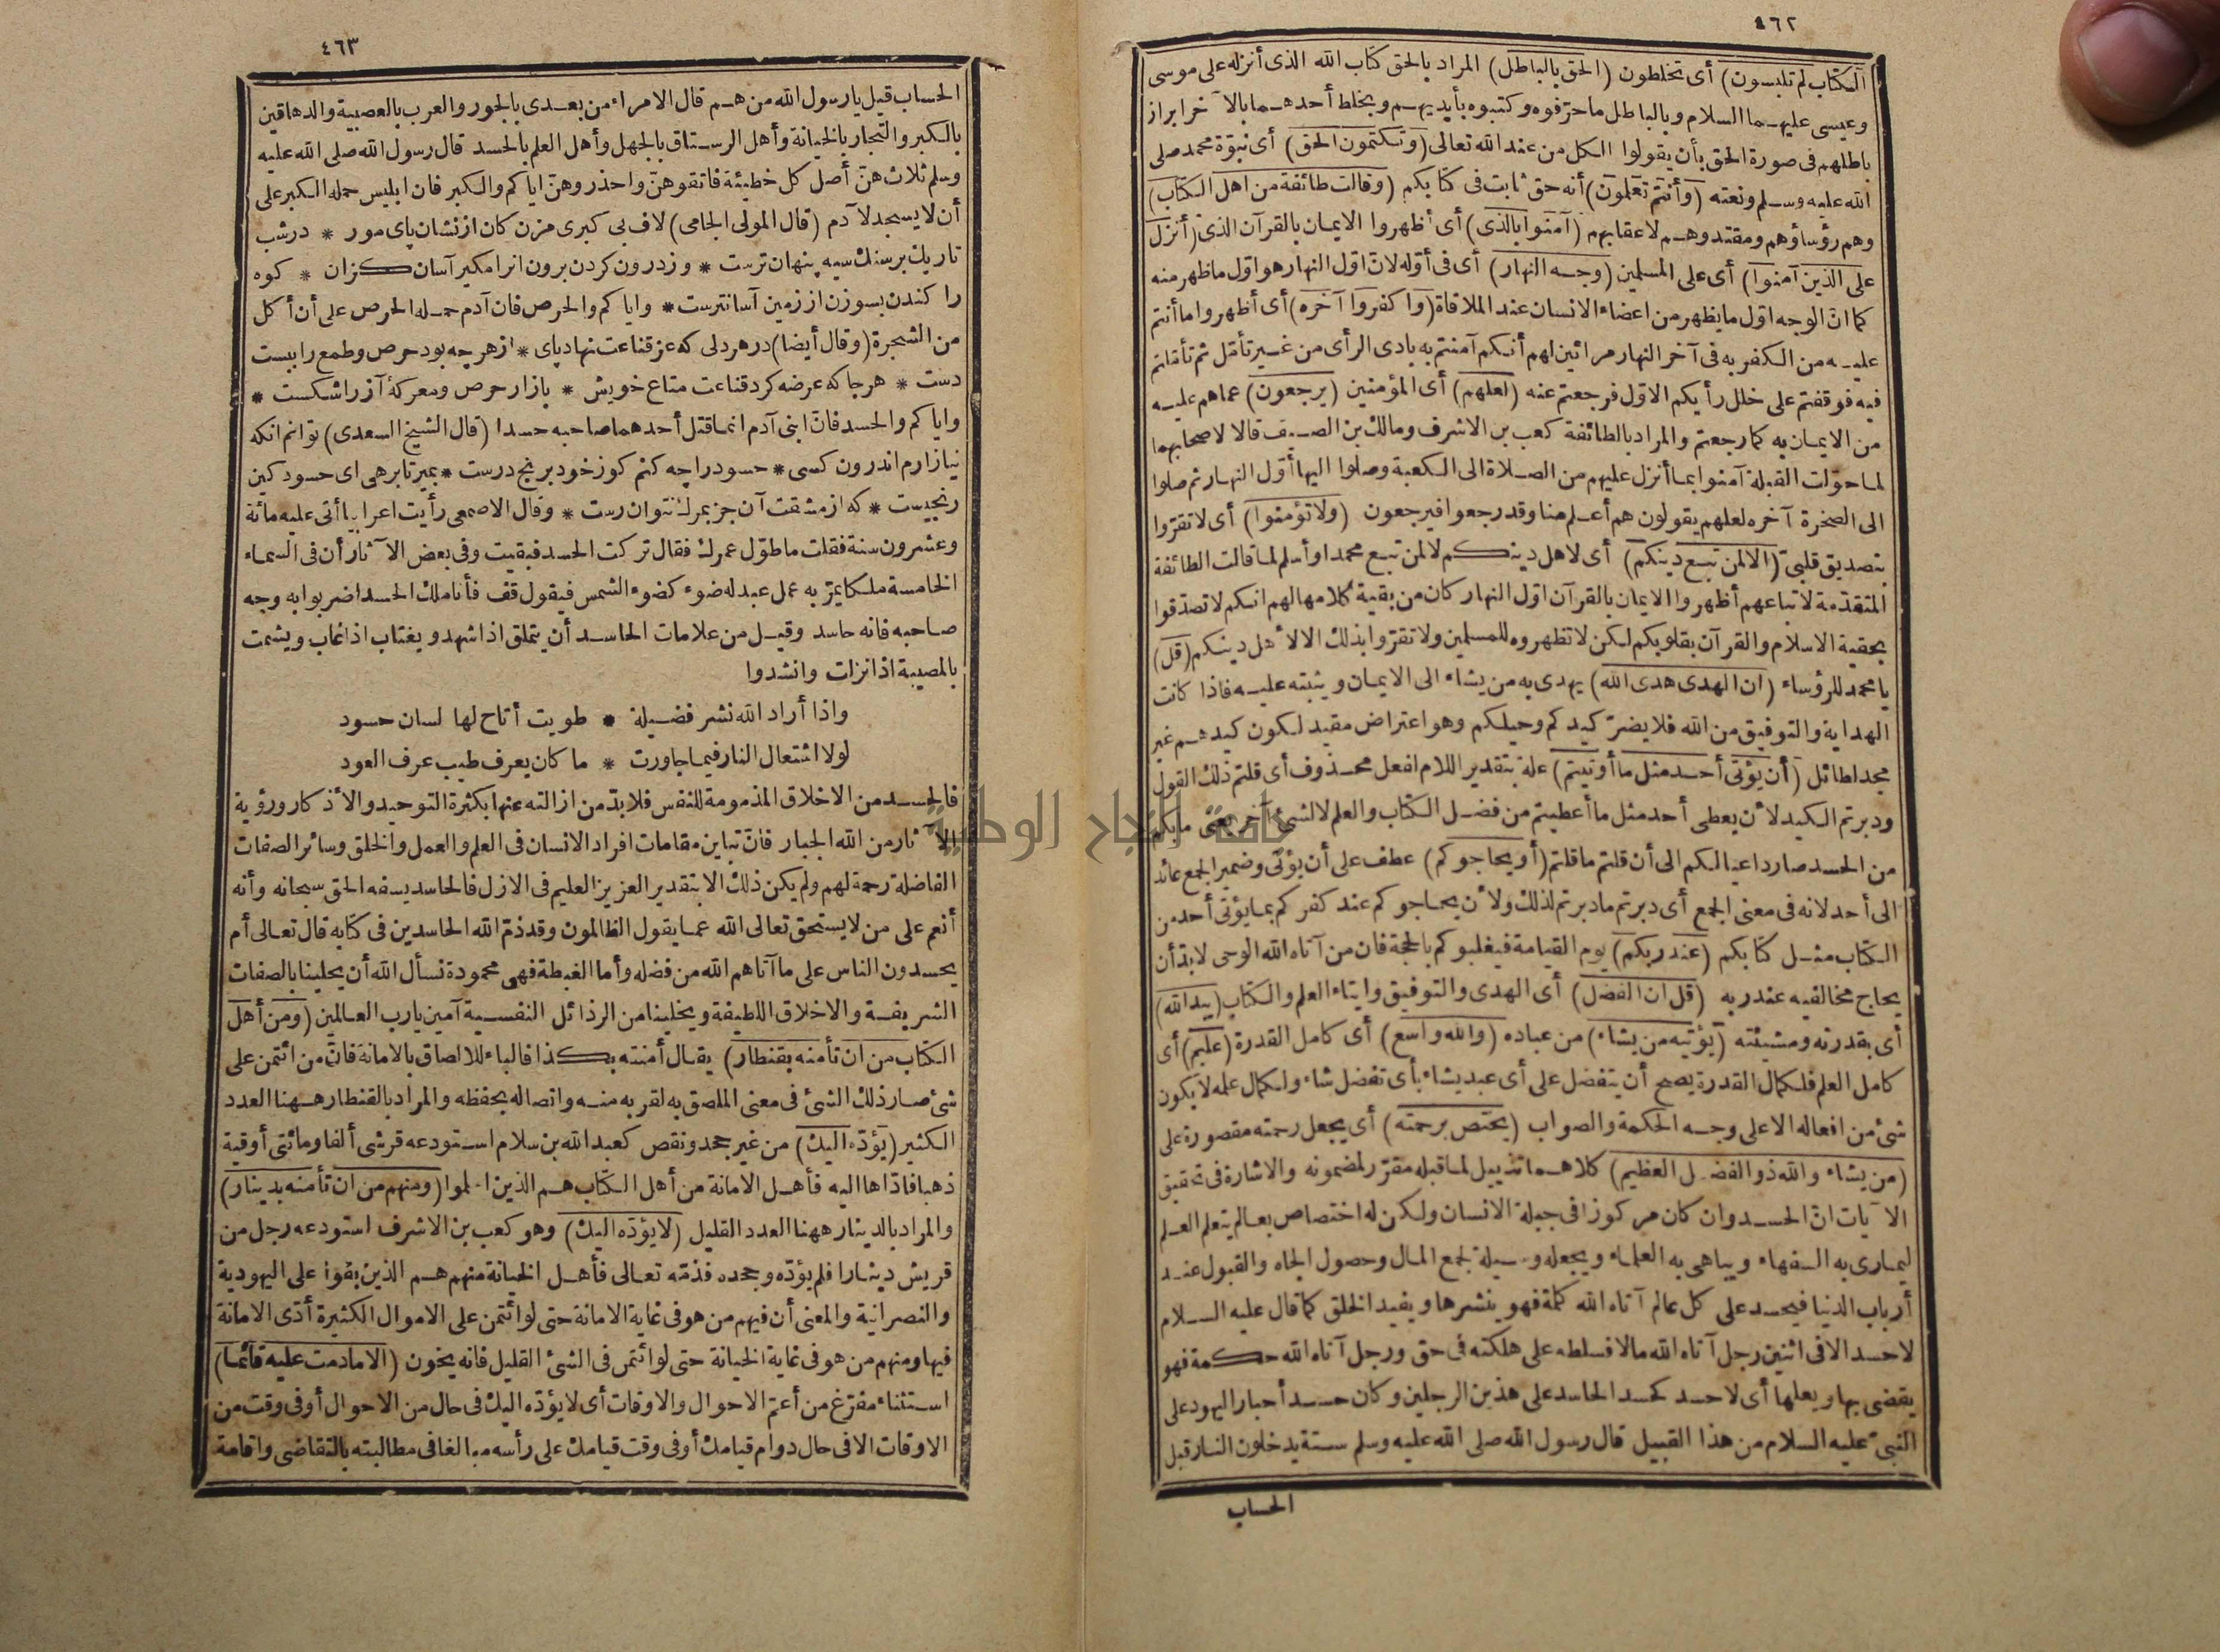 ٤٦٢
الكتاب لم تلبسون) أى تخلطون (الحق بالباطل) المراد بالحق كتاب الله الذى أنزله على موسى
وعيسى عليهما السلام وبالباطل ما حرّفوه وكتبوه بأيديهم ويخلط أحدهما بالآخر ابراز
باطلهم فى صورة الحق بأن يقولوا الكل من عند الله تعالى (وتكتمون الحق) أى نبوّة محمد صلى
الله عليه وسلم ونعته (وأنتم تعلمون) أنه حق ثابت فى كتابكم (وقالت طائفة من اهل الكتاب)
وهم رؤساؤهم ومفتدوهم لاعقابهم (آمنوا بالذى) أى أظهروا الايمان بالقرآن الذى (أنزل
على الذين آمنوا) أى على المسلمين (وجه النهار) أى فى أوّله لانّ اوّل النهار هو اوّل ما ظهر منه
كما انّ الوجه اوّل ما يظهر من اعضاء الانسان عند الملاقاة (واكفروا آخره) أى أظهروا ما أنتم
عليه من الكفر به فى آخر النهار مرائين لهم أنكم آمنتم به بادى الرأى من غير تأمّل ثم تأمّلتم
فيه فوقفتم على خلل رأيكم الاوّل فرجعتم عنه (لعلهم) أى المؤمنين (يرجعون) عماهم عليه
من الايمان به كما رجعتم والمراد بالطائفة كعب بن الاشرف ومالك بن الصيف قالا لاصحابهما
لما حوّلت القبلة آمنوا بما أنزل عليهم من الصلاة الى الكعبة وصلوا اليها أوّل النهار ثم صلوا
الى الصخرة آخره لعلهم يقولون هم أعلم منا وقد رجعوا فيرجعون (ولا تؤمنوا) أى لا تقرّوا
بتصديق قلبىّ (الا لمن تبع دينكم) أى لاهل دينكم لا لمن تبع محمدا وأسلم لما قالت الطائفة
المتقدّمة لاتباعهم أظهروا الايمان بالقرآن اوّل النهار كان من بقية كلامها لهم انكم لا تصدّقوا
بحقية الاسلام والقرآن بقلوبكم لكن لا تظهروه للمسلمين ولا تقرّوا بذلك الا لأهل دينكم (قل)
يا محمد للرؤساء (ان الهدى هدى الله) يهدى به من يشاء الى الايمان ويثبته عليه فاذا كانت
الهداية والتوفيق من الله فلا يضرّ كيدكم وحيلكم وهو اعتراض مفيد لكون كيدهم غير
مجد لطائل (أن يؤتى أحد مثل ما أوتيتم) علة بتقدير اللام لفعل محذوف أى قلتم ذلك القول
ودبرتم الكيد لأن يعطى أحد مثل ما أعطيتم من فضل الكتاب والعلم لا لشئ آخر يعنى ما بكم
من الحسد صار داعيا لكم الى أن قلتم ما قلتم (أو يحاجوكم) عطف على أن يؤتى وضمير الجمع عائد
الى أحد لانه فى معنى الجمع أى دبرتم ما دبرتم لذلك ولأن يحاجوكم عند كفركم بما يؤتى أحد من
الكتاب مثل كتابكم (عند ربكم) يوم القيامة فيغلبوكم بالحجة فان من آتاه الله الوحى لابدّ أن
يحاج مخالفيه عند ربه (قل ان الفضل) أى الهدى والتوفيق وايتاء العلم والكتاب (بيد الله)
أى بقدرته ومشيئته (يؤتيه من يشاء) من عباده (والله واسع) أى كامل القدرة (عليم) أى
كامل العلم فلكمال القدرة يصح أن يتفضل على أى عبد يشاء بأى تفضل شاء ولكمال علمه لا يكون
شئ من افعاله الا على وجه الحكمة والصواب (يختص برحمته) أى يجعل رحمته مقصورة على
(من يشاء والله ذو الفضل العظيم) كلاهما تذييل لما قبله مقرّر لمضمونه والاشارة فى تحقيق
الآيات انّ الحسد وان كان مركوزا فى جبلة الانسان ولكن له اختصاص بعالم يتعلم العلم
ليمارى به السفهاء ويباهى به العلماء ويجعله وسيلة لجمع المال وحصول الجاه والقبول عند
أرباب الدنيا فيحسد على كل عالم آتاه الله كلمة فهو ينشرها ويفيد الخلق كما قال عليه السلام
لا حسد الا فى اثنين رجل آتاه الله مالا فسلطه على هلكته فى حق ورجل آتاه الله حكمة فهو
يقضى بها ويعلمها أى لا حسد كحسد الحاسد على هذين الرجلين وكان حسد أحبار اليهود على
النبىّ عليه السلام من هذا القبيل قال رسول الله صلى الله عليه وسلم ستة يدخلون النار قبل
الحساب
٤٦٣
الحساب قيل يا رسول الله من هم قال الامراء من بعدى بالجور والعرب بالعصبية والدهاقين
بالكبر والتجار بالخيانة وأهل الرستاق بالجهل وأهل العلم بالحسد قال رسول الله صلى الله عليه
وسلم ثلاث هنّ أصل كل خطيئة فاتقوهنّ واحذروهنّ اياكم والكبر فان ابليس حمله الكبر على
أن لا يسجد لآدم (قال المولى الجامى) لاف بى كبرى مزن كان از نشان پاى مور * درشب
تاريك برسنك سيه پنهان ترست * وز درون كردن برون انرا مكير آسان كزان * كوه
را كندن بسوزن از زمين آسانترست * واياكم والحرص فان آدم حمله الحرص على أن أكل
من الشجرة (وقال أيضا) در هر دلى كه عز قناعت نهاد پاى * از هر چه بود حرص وطمع را ببست
دست * هر جا كه عرضه كرد قناعت متاع خويش * بازار حرص ومعركۀ آز را شكست *
واياكم والحسد فانّ ابنى آدم انما قتل أحدهما صاحبه حسدا (قال الشيخ السعدى) توانم انكه
نيازارم اندرون كسى * حسود را چه كنم كوز خود برنج درست * بمير تا برهى اى حسود كين
رنجيست * كه از مشقت آن جز بمرك نتوان رست * وقال الاصمعى رأيت اعرابيا أتى عليه مائة
وعشرون سنة فقلت ما طوّل عمرك فقال تركت الحسد فبقيت وفى بعض الآثار أن فى السماء
الخامسة ملكا يمرّ به عمل عبد له ضوء كضوء الشمس فيقول قف فأنا ملك الحسد اضربوا به وجه
صاحبه فانه حاسد وقيل من علامات الحاسد أن يتملق اذا شهد ويغتاب اذا غاب ويشمت
بالمصيبة اذا نزلت وانشدوا
واذا أراد الله نشر فضيلة * طويت أتاح لها لسان حسود
لولا اشتعال النار فيما جاورت * ما كان يعرف طيب عرف العود
فالحسد من الاخلاق المذمومة للنفس فلا بدّ من ازالته عنها بكثرة التوحيد والأذكار ورؤية
الآثار من الله الجبار فانّ تباين مقامات افراد الانسان فى العلم والعمل والخلق وسائر الصفات
الفاضلة رحمة لهم ولم يكن ذلك الا بتقدير العزيز العليم فى الازل فالحاسد يسفه الحق سبحانه وأنه
أنعم على من لا يستحق تعالى الله عما يقول الظالمون وقد ذمّ الله الحاسدين فى كتابه قال تعالى أم
يحسدون الناس على ما آتاهم الله من فضله وأما الغبطة فهى محمودة نسأل الله أن يحلينا بالصفات
الشريفة والاخلاق اللطيفة ويخلينا من الرذائل النفسية آمين يا رب العالمين (ومن أهل
الكتاب من ان تأمنه بقنطار) يقال أمنته بكذا فالباء للالصاق بالامانة فانّ من ائتمن على
شئ صار ذلك الشئ فى معنى الملصق به لقربه منه واتصاله بحفظه والمراد بالقنطار ههنا العدد
الكثير (يؤدّه اليك) من غير جحد ونقص كعبد الله بن سلام استودعه قرشى ألفا ومائتى أوقية
ذهبا فادّاها اليه فأهل الامانة من أهل الكتاب هم الذين اسلموا (ومنهم من ان تأمنه بدينار)
والمراد بالدينار ههنا العدد القليل (لا يؤدّه اليك) وهو كعب بن الاشرف استودعه رجل من
قريش دينارا فلم يؤدّه وجحده فذمّه تعالى فأهل الخيانة منهم هم الذين بقوا على اليهودية
والنصرانية والمعنى أن فيهم من هو فى غاية الامانة حتى لو ائتمن على الاموال الكثيرة أدّى الامانة
فيها ومنهم من هو فى غاية الخيانة حتى لو ائتمن فى الشئ القليل فانه يخون (الا ما دمت عليه قائما)
استثناء مفرّغ من أعمّ الاحوال والاوقات أى لا يؤدّه اليك فى حال من الاحوال أو فى وقت من
الاوقات الا فى حال دوام قيامك أو فى وقت قيامك على رأسه مبالغا فى مطالبته بالتقاضى واقامة